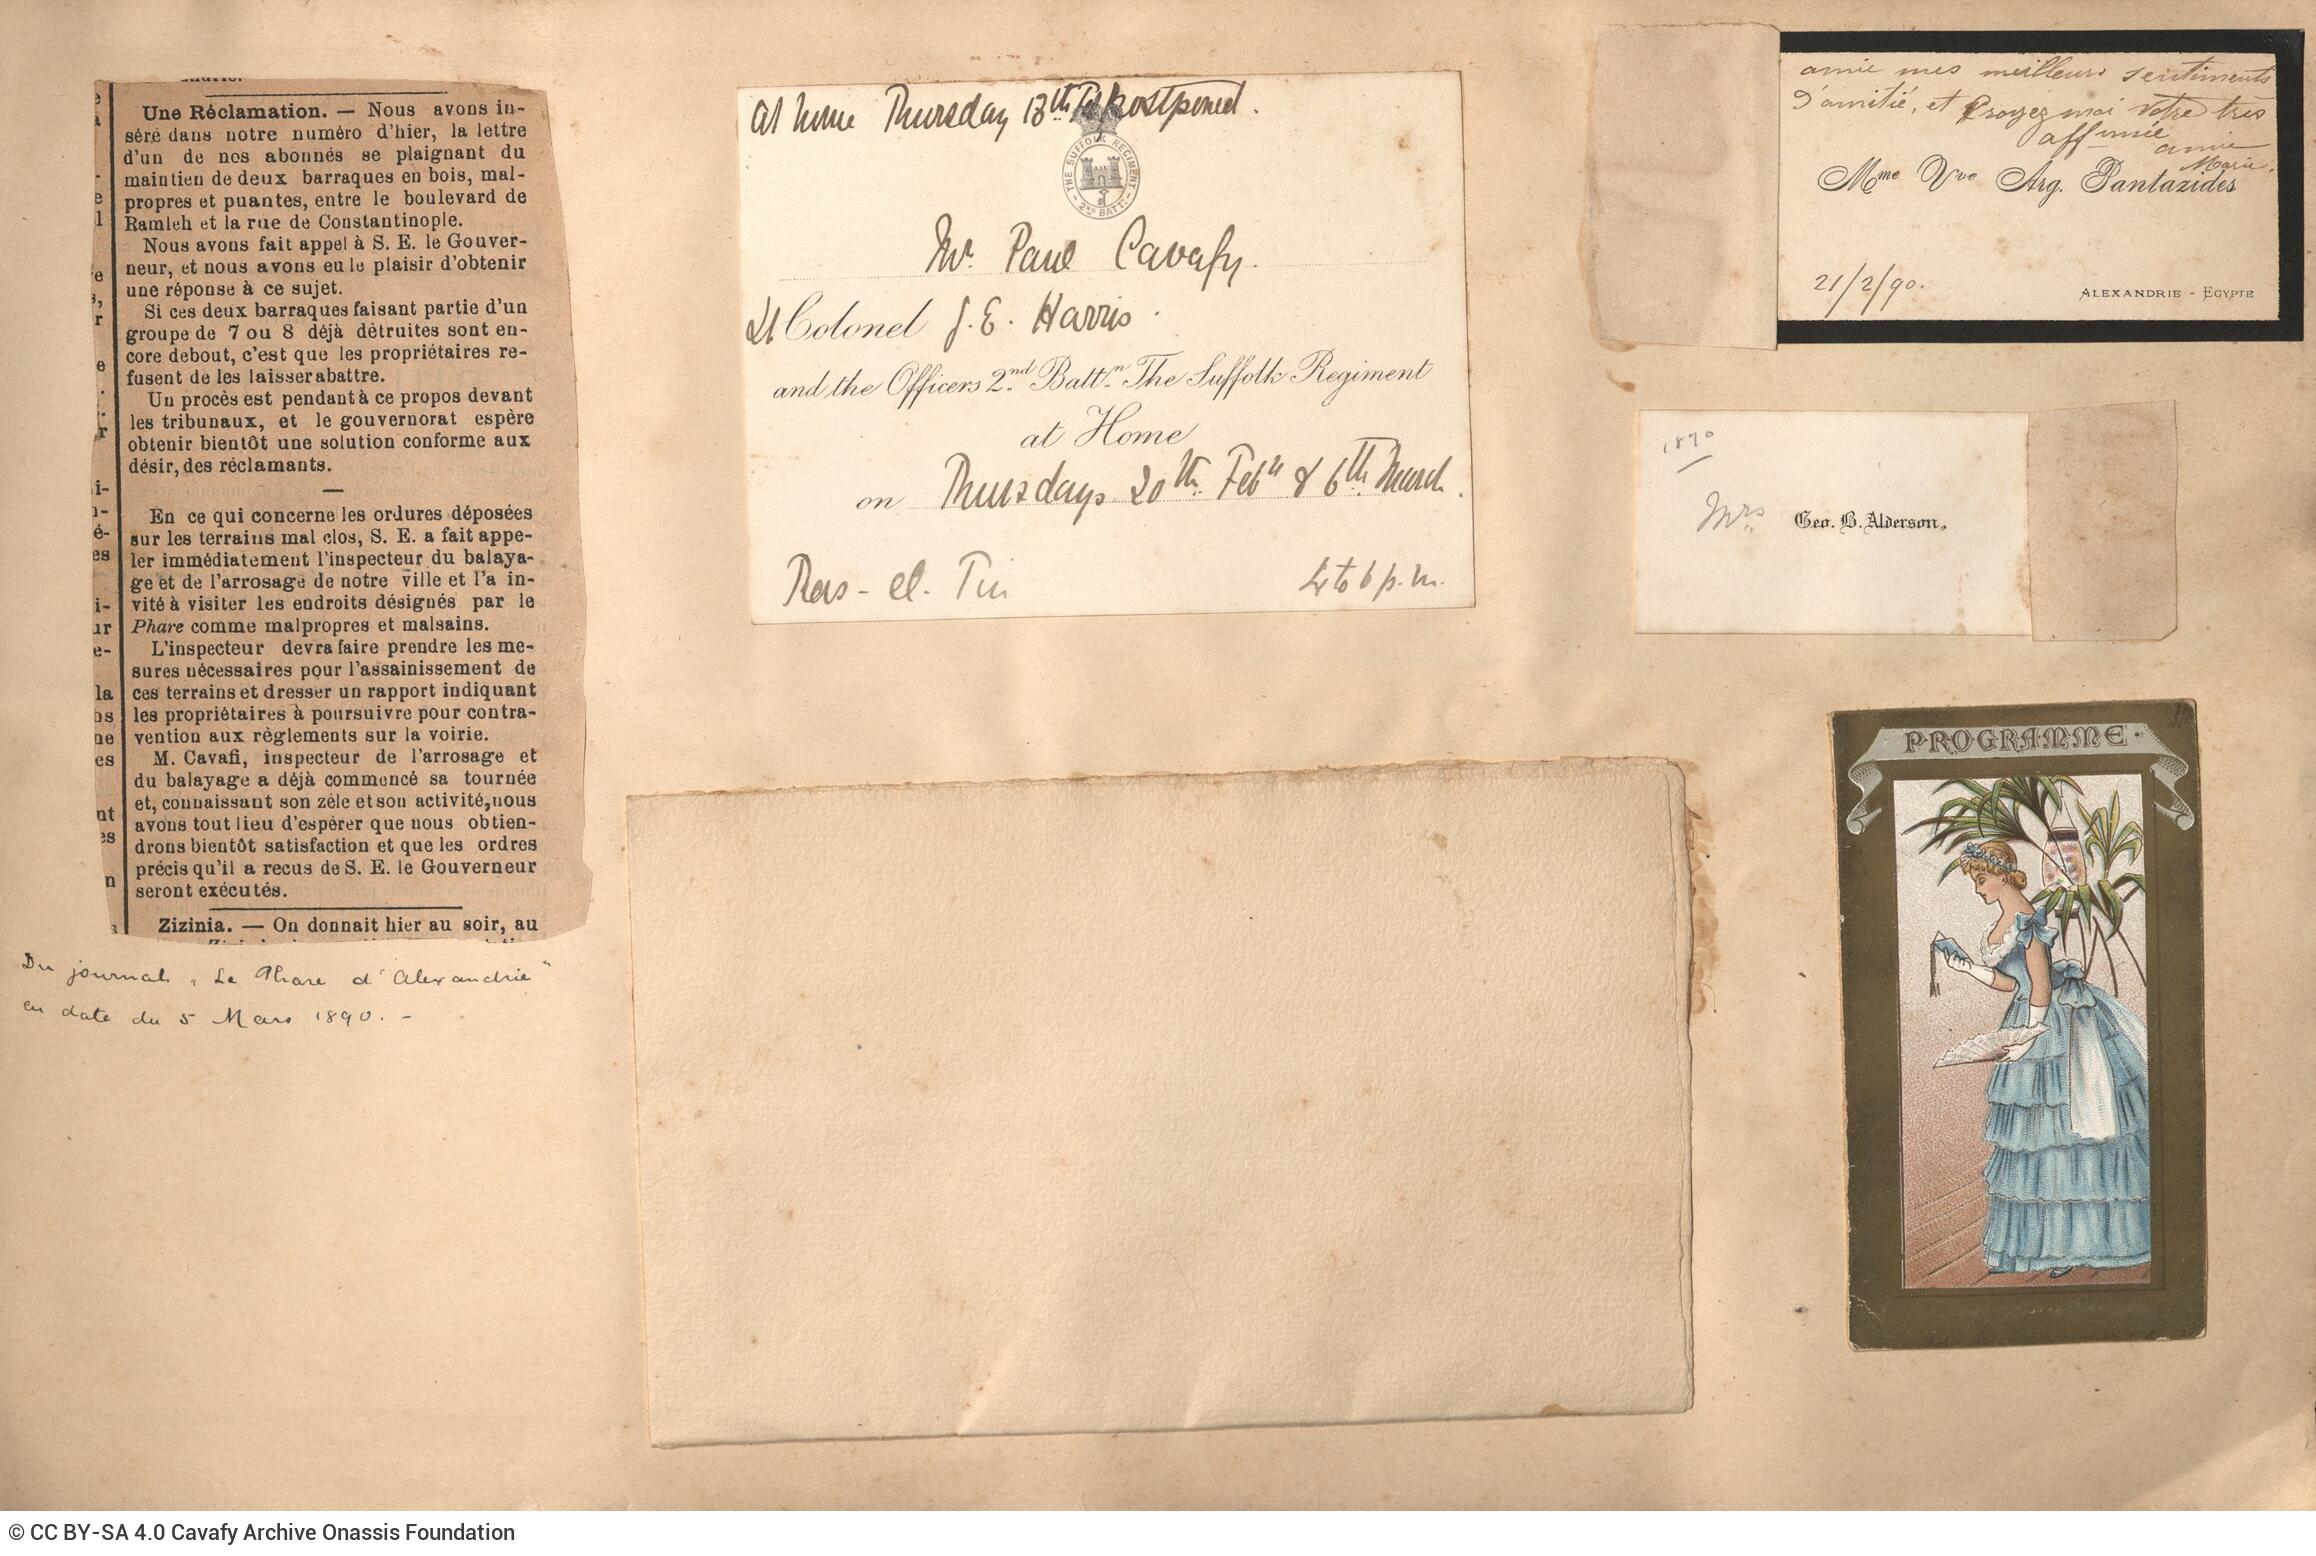 Une Réclamation. — Nous avons in-
séré dans notre numéro d'hier, la lettre
d'un de nos abonnés se plaignant du
maintien de deux barraques en bois, mal-
propres et puantes, entre le boulevard de
Ramleh et la rue de Constantinople.
Nous avons fait appel à S. E. le Gouver-
neur, et nous avons eu le plaisir d'obtenir
une réponse à ce sujet.
Si ces deux barraques faisant partie d'un
groupe de 7 ou 8 déjà détruites sont en-
core debout, c'est que les propriétaires re-
fusent de les laisser abattre.
Un procès est pendant à ce propos devant
les tribunaux, et le gouvernorat espère
obtenir bientôt une solution conforme aux
désir, des réclamants.
En ce qui concerne les ordures déposées
sur les terrains mal clos, S. E. a fait appe-
ler immédiatement l'inspecteur du balaya-
ge et de l'arrosage de notre ville et l'a in-
vité à visiter les endroits désignés par le
Phare comme malpropres et malsains.
L'inspecteur devra faire prendre les me-
sures nécessaires pour l'assainissement de
ces terrains et dresser un rapport indiquant
les propriétaires à poursuivre pour contra-
vention aux règlements sur la voirie.
M. Cavafi, inspecteur de l'arrosage et
du balayage a déjà commencé sa tournée
et, connaissant son zèle et son activité, nous
avons tout lieu d'espérer que nous obtien-
drons bientôt satisfaction et que les ordres
précis qu'il a recus de S. E. le Gouverneur
seront exécutés.
Zizinia. — On donnait hier au soir, au
Du journal „Le Phare d'Alexandrie"
en date du 5 Mars 1890. –
At home Thursday 13th Feb postponed.
THE SUFFOLK REGIMENT
2ND BATT.
Mr. Paul Cavafy.
Lt Colonel J. E. Harris.
and the Officers 2nd Battn. The Suffolk Regiment
at Home
on Thursdays 20th Feby & 6th March.
Ras-el-Tin 4 to 6 p.m.
amie mes meilleurs sentiments
d'amitié, et Croyez moi votre très
aff–née amie
Marie.
Mme Vve Arg. Pantazides
21/2/90.
ALEXANDRIE - EGYPTE
1890
Mrs Geo. B. Alderson,
PROGRAMME
© CC BY-SA 4.0 Cavafy Archive Onassis Foundation